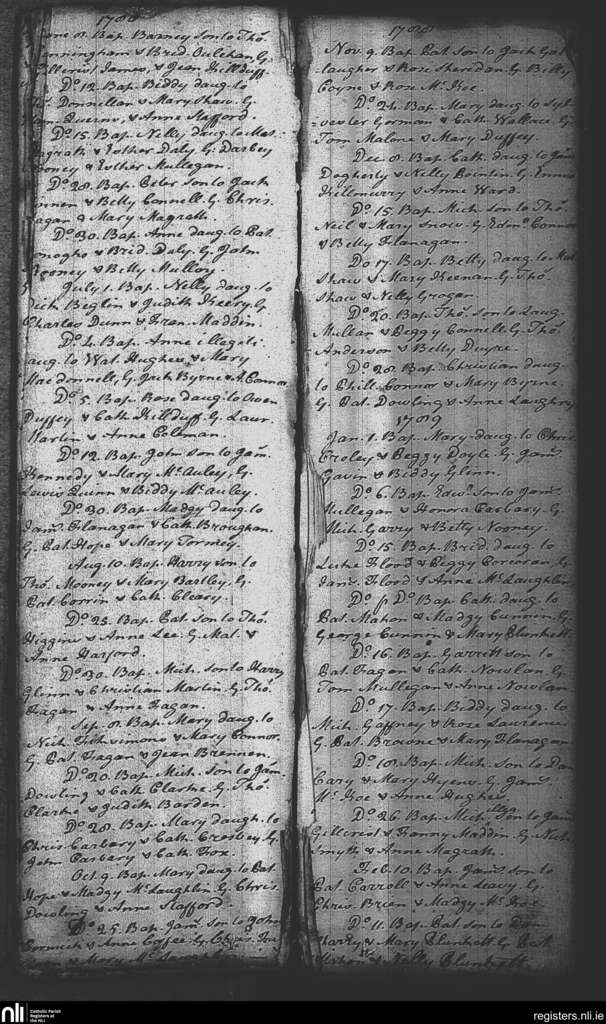 Bap. Barney son to Tho.s
& Brid. Culehan G.
James, & Jean Killduff.
D.o 12. Bap. Biddy daug. to
Donnellan & Mary Shaw. G.
& Anne Stafford.
D.o 15. Bap. Nelly daug. to Mat.
& Esther Daly G. Darbey
& Esther Mullegan.
D.o 28. Bap. Peter son to Jack
& Betty Connell G. Chris.
& Mary Magrath.
D.o 30. Bap. Anne daug. to Pat.
& Brid. Daly. G. John
& Betty Mullory.
July 1. Bap. Nelly daug. to
Dick Beglin & Judith Keery. G.
Charles Dunn & Fran. Maddin.
D.o 4. Bap. Anne illegit.
daug. to Wat. Hughes & Mary
Macdonnell, G. Jack Byrne & A. Connor
D.o 5. Bap. Rose daug. to Owen
Duffey & Cath. Killduff. G. Laur.
Martin & Anne Coleman.
D.o 12. Bap. John son to Jam.s
Kennedy & Mary McAuley, G.
Lewis Quinn & Biddy McAuley.
D.o 30. Bap. Madgy daug. to
Jam.s Flanagan & Cath. Broughan.
G. Pat. Hope & Mary Tormey.
Aug. 10. Bap. Harry son to
Tho.s Mooney & Mary Bartley, G.
Pat. Corrin & Cath. Cleary.
D.o 25. Bap. Pat. son to Tho.s
Higgins & Anne Lee. G. Mat. &
Anne Harford.
D.o 30. Bap. Mich. son to Harry
Glinn & Christian Martin. G. Tho.s
Fagan & Anne Fagan.
Sep. 8. Bap. Mary daug. to
Nich. Fitzsimons & Mary Connor.
G. Pat. Fagan & Jean Brennen.
D.o 20. Bap. Mich. son to Jam.s
Dowling & Cath. Clarke, G. Tho.s
Clarke & Judith Barden.
D.o 28. Bap. Mary daugh. to
Chris. Carbery & Cath. Crosbey G.
John Carbery & Cath. Fox.
Oct. 9. Bap. Mary daug. to Pat.
Hope & Madgy McLaughlin G. Chris.
Dowling & Anne Stafford.
D.o 25. Bap. Jam.s son to John
& Anne Coffee G. Chris.
& Mary
Nov. 9. Bap. Pat. son to Jack Gal
laugher & Rose Sheridan. G. Billy
Coyne & Rose McKoe.
D.o 24. Bap. Mary daug. to Syl-
vester Gorman & Cath. Wallace. G.
Tom Malone & Mary Duffey.
Dec. 8. Bap. Cath. daug. to Jam.s
Dogherty & Nelly Cointin G.
Killmurry & Anne Ward.
D.o 15. Bap. Mich. son to Tho.s
Neil & Mary Snow. G. Edm.d Connor
& Betty Flanagan.
Do 17. Bap. Betty daug. to Mat.
Shaw & Mary Keenan. G. Tho.s
Shaw & Nelly Grogan.
D.o 20. Bap. Tho.s son to Laug.
Mullan & Peggy Connell G. Tho.s
Anderson & Betty
D.o 28. Bap. Christian daug.
to Phill. Connor & Mary Byrne.
G. Pat. Dowling & Anne Laughry
1789
Jan. 1. Bap. Mary daug. to Chris.
Croley & Peggy Doyle G. Jam.s
Gavin & Biddy Glinn.
D.o 6. Bap. Edw.d son to Jam.s
Mullegan & Honora Carbery. G.
Mich. Garry & Betty Nooney.
D.o 15. Bap. Brid. daug. to
Luke Flood & Peggy Corcoran G.
Jam.s Flood & Anne McLaughlin
D.o D.o Bap. Cath. daug. to
Pat. Mahon & Madgy Cunnin, G.
George Cunnin & Mary Plunkett.
D.o 16. Bap. Garrett son to
Pat. Fagan & Cath. Nowlan G.
Tom Mullegan & Anne Nowlan.
D.o 17. Bap. Biddy daug. to
Mich. Gaffney & Rose Lawrence
G. Pat. Browne & Mary Flanagan.
D.o 18. Bap. Mich. son to Dan.
Cary & Mary Hyens. G. Jam.s
McKoe & Anne Hughes.
D.o 26. Bap. Mich. son to Jam.s
Gillcrist & Fanny Maddin. G. Nich.
Smyth & Anne Magrath.
Feb. 10. Bap. Jam.s son to
Pat. Carroll & Anne Leavy G.
Chris. Brien & Madgy McKoe.
D.o 11. Bap. Pat. son to
& Mary Plunkett G. Pat.
& Nelly Plunkett.
nli
Catholic Parish
Registers at
the NLI
registers.nli.ie